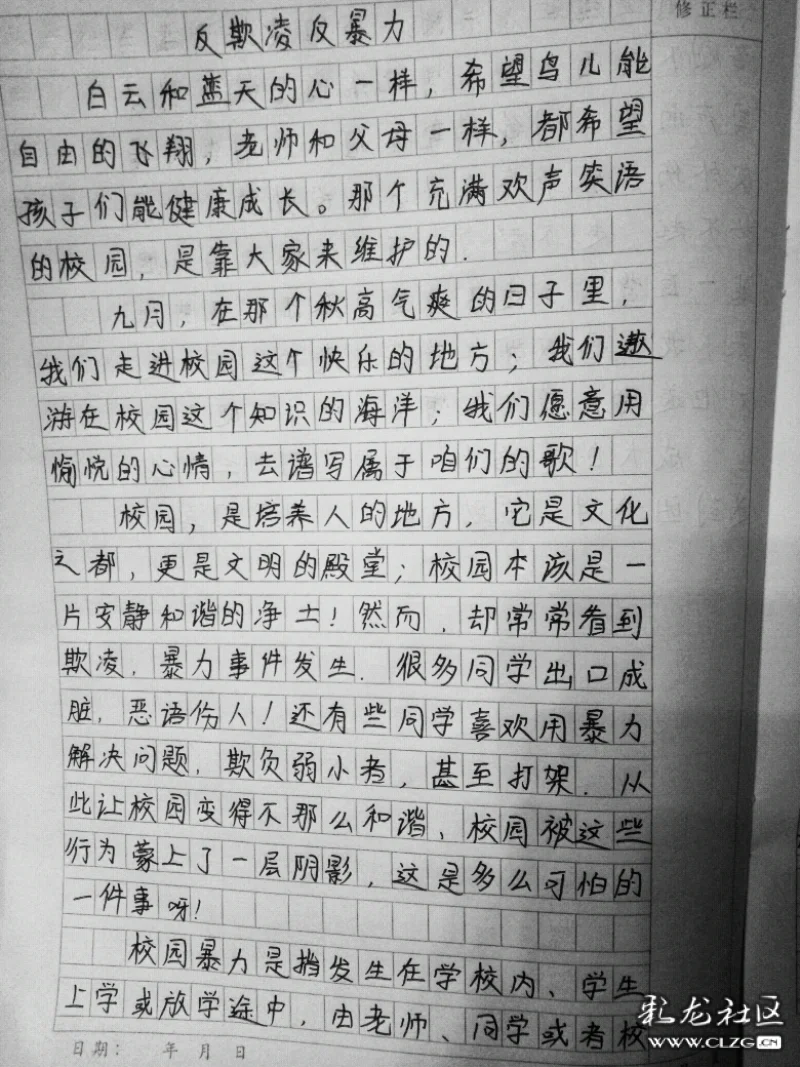 修正栏
反欺凌反暴力
白云和蓝天的心一样，希望鸟儿能
自由的飞翔，老师和父母一样，都希望
孩子们能健康成长。那个充满欢声笑语
的校园，是靠大家来维护的．
九月，在那个秋高气爽的日子里，
我们走进校园这个快乐的地方；我们遨
游在校园这个知识的海洋；我们愿意用
愉悦的心情，去谱写属于咱们的歌！
校园，是培养人的地方，它是文化
之都，更是文明的殿堂；校园本该是一
片安静和谐的净土！然而，却常常看到
欺凌，暴力事件发生．很多同学出口成
脏，恶语伤人！还有些同学喜欢用暴力
解决问题，欺负弱小者，甚至打架．从
此让校园变得不那么和谐、校园被这些
行为蒙上了一层阴影，这是多么可怕的
一件事呀！
校园暴力是指发生在学校内、学生
上学或放学途中，由老师、同学或者校
日期： 年 月 日
彩龙社区
WWW.CLZG.CN